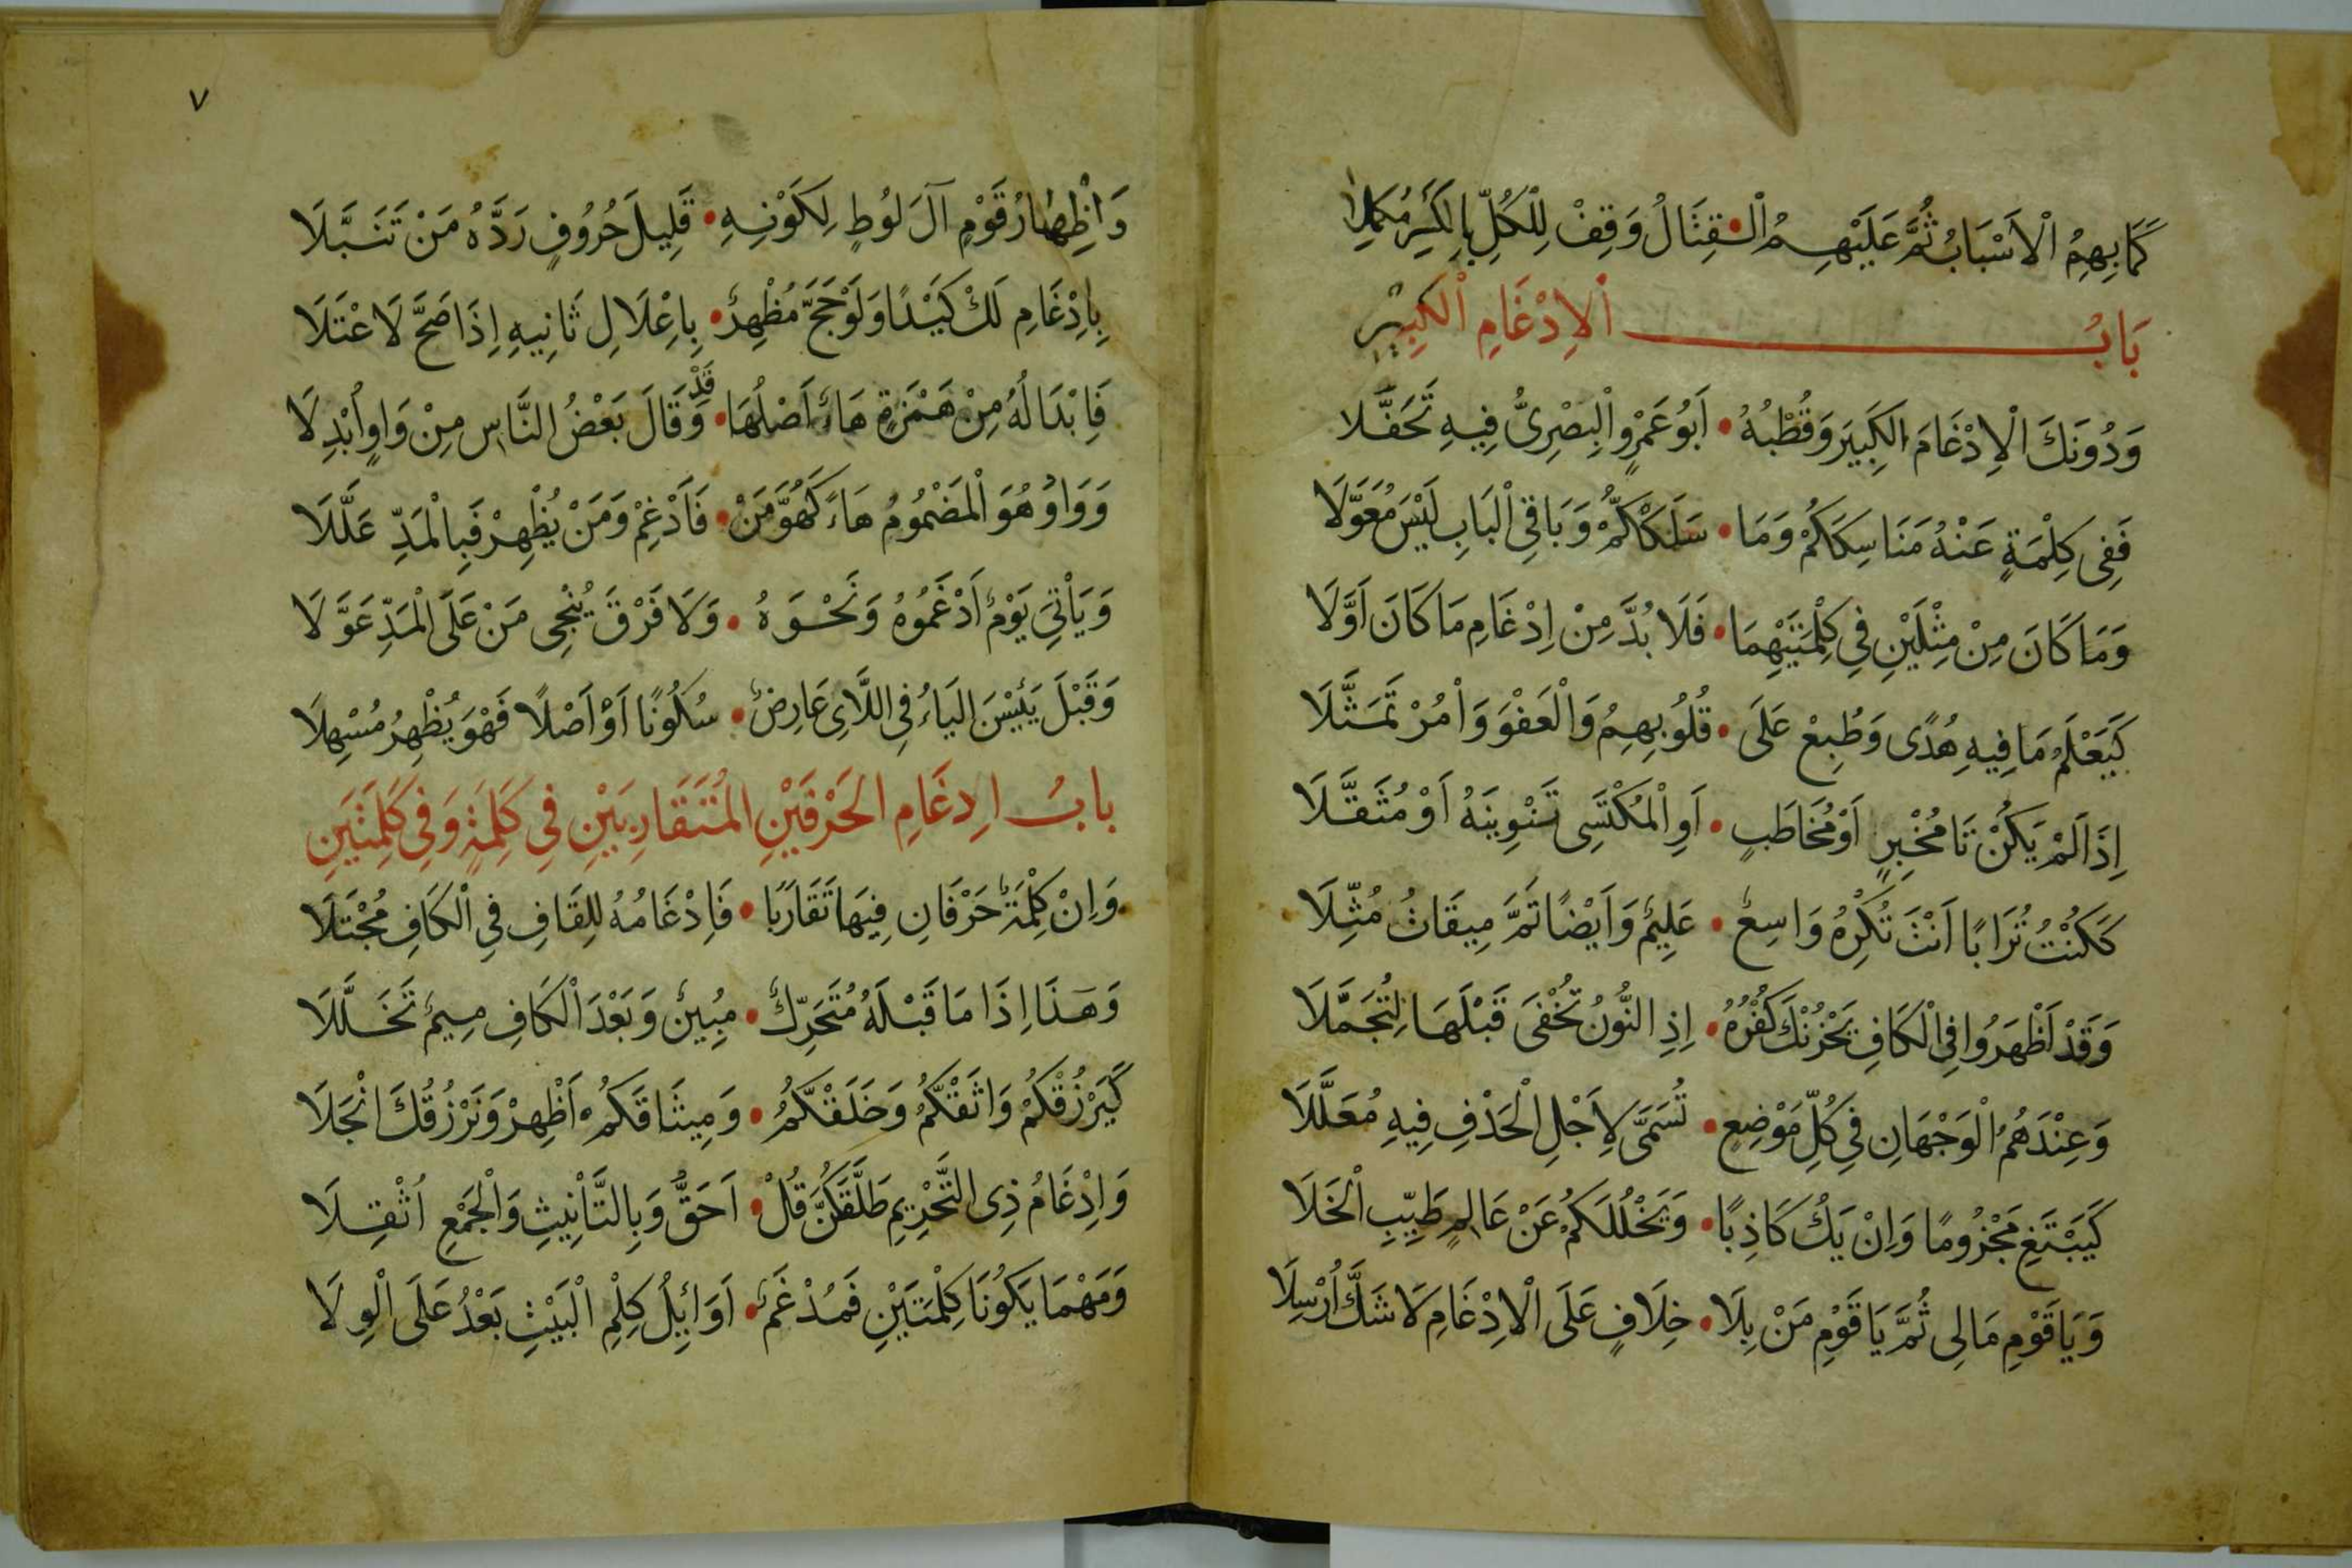 كَمَا بِهِمُ الْاَسْبَابُ ثُمَّ عَلَيْهِمُ الْقِتَالُ وَقِفْ لِلْكُلِّ بِالْكَسْرِ مُكْمِلَا
بَابُ الْاِدْغَامِ الْكَبِيْرِ
وَدُونَكَ الْاِدْغَامَ الْكَبِيَر وَقُطْبُهُ • اَبُو عَمْرٍو الْبَصْرِىُّ فِيهِ تَحَفَّلَا
فَفِى كِلْمَةٍ عَنْهُ مَنَاسِكَكُمْ وَمَا • سَلَكْكُّمْ وَبَاقِى الْبَابِ لَيْسَ مُعَوَّلَا
وَمَا كَانَ مِنْ مِثْلَيْنِ فِى كِلْمَتَيْهِمَا • فَلَا بُدَّ مِنْ اِدْغَامِ مَا كَانَ اَوَّلَا
كَيَعْلَمُ مَا فِيهِ هُدًى وَطُبِعْ عَلَى • قُلُوبِهِمُ وَالْعَفْوَ وَاْمُرْ تَمَثَّلَا
اِذَا لَمْ يَكُنْ تَا مُخْبِرٍ اَوْ مُخَاطَبٍ • اَوِ الْمُكْتَسِى تَنْوِينَهُ اَوْ مُثَقَّلَا
كَكُنْتُ تُرَابًا اَنْتَ تُكْرِهُ وَاسِعٌ • عَلِيمٌ وَاَيْضًا تَمَّ مِيقَاتُ مُثِّلَا
وَقَدْ اَظْهَرُوا فِى الْكَافِ يَحْزُنْكَ كُفْرُهُ • اِذِ النُّونُ تُخْفَى قَبْلَهَا لِتُجَمَّلَا
وَعِنْدَهُمُ الْوَجْهَانِ فِى كُلِّ مَوْضِعٍ • تُسَمَّى لِاَجْلِ الْحَذْفِ فِيهِ مُعَلَّلَا
كَيَبْتَغِ مَجْزُومًا وَاِنْ يَكُ كَاذِبًا • وَيَخْلُ لَكُمْ عَنْ عَالِمٍ طَيِّبِ الْخَلَا
وَيَا قَوْمِ مَالِى ثُمَّ يَا قَوْمِ مَنْ بِلَا • خِلَافٍ عَلَى الْاِدْغَامِ لَا شَكَّ اُرْسِلَا
٧
وَاِظْهَارُ قَوْمٍ آلَ لُوطٍ لِكَوْنِهِ • قَلِيلَ حُرُوفٍ رَدَّهُ مَنْ تَنَبَّلَا
بِاِدْغَامِ لَكْ كَيْدًا وَلَوْ حَجَّ مُظْهِرٌ • بِاِعْلَالِ ثَانِيهِ اِذَا صَحَّ لَاعْتَلَا
فَاِبْدَالُهُ مِنْ هَمْزَةٍ هَاءٌ اَصْلُهَا • وَقَدْ قَالَ بَعْضُ النَّاسِ مِنْ وَاوٍ اُبْدِلَا
وَوَاوُ هُوَ الْمَضْمُومُ هَاءً كَهُوَّ مَنْ • فَاَدْغِمْ وَمَنْ يُظْهِرْ فَبِالْمَدِّ عَلَّلَا
وَيَاْتِىَ يَوْمٌ اَدْغَمُوهُ وَنَحْوَهُ • وَلَا فَرْقَ يُنْجِى مَنْ عَلَى الْمَدِّ عَوَّلَا
وَقَبْلَ يَئِسْنَ الْيَاءُ فِى اللَّاىِ عَارِضٌ • سُكُونًا اَوْ اَصْلًا فَهْوَ يُظْهِرُ مُسْهِلَا
بابُ اِدِغَامِ الْحَرْفَيْنِ الْمُتَقَارِبَيْنِ فِى كَلِمَةٍ وَفِى كَلِمَتَيْنِ
وَاِنْ كِلْمَةٌ حَرْفَانِ فِيهَا تَقَارَبَا • فَاِدْغَامُهُ لِلْقَافِ فِى الْكَافِ مُجْتَلَا
وَهَذَا اِذَا مَا قَبْلَهُ مُتَحَرِّكٌ • مُبِينٌ وَبَعْدَ الْكَافِ مِيمٌ تَخَلَّلَا
كَيَرْزُقْكُمُ وَاثَقْكُمُ وَخَلَقْكُّمُ • وَمِيثَاقَكُمْ اَظْهِرْ وَنَرْزُقُكَ انْجَلَا
وَاِدْغَامُ ذِى التَّحْرِيمِ طَلَّقَكُنَّ قُلْ • اَحَقُّ وَبِالتَّاْنِيثِ وَالْجَمْعِ اُثْقِلَا
وَمَهْمَا يَكُونَا كِلْمَتَيْنِ فَمُدْغَمٌ • اَوَائِلُ كِلْمِ الْبَيْتِ بَعْدُ عَلَى الْوِلَا